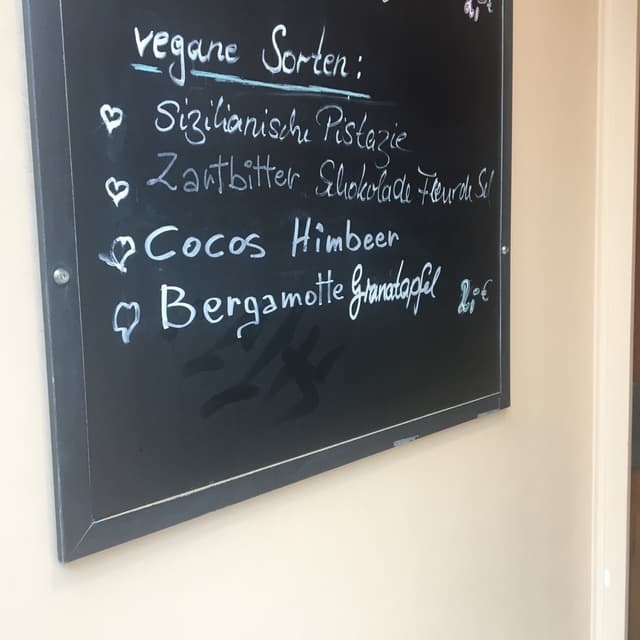 vegane Sorten:
Sizilianische Pistazie
Zartbitter Schokolade Fleur de Sel
Cocos Himbeer
Bergamotte Granatapfel 2,-€